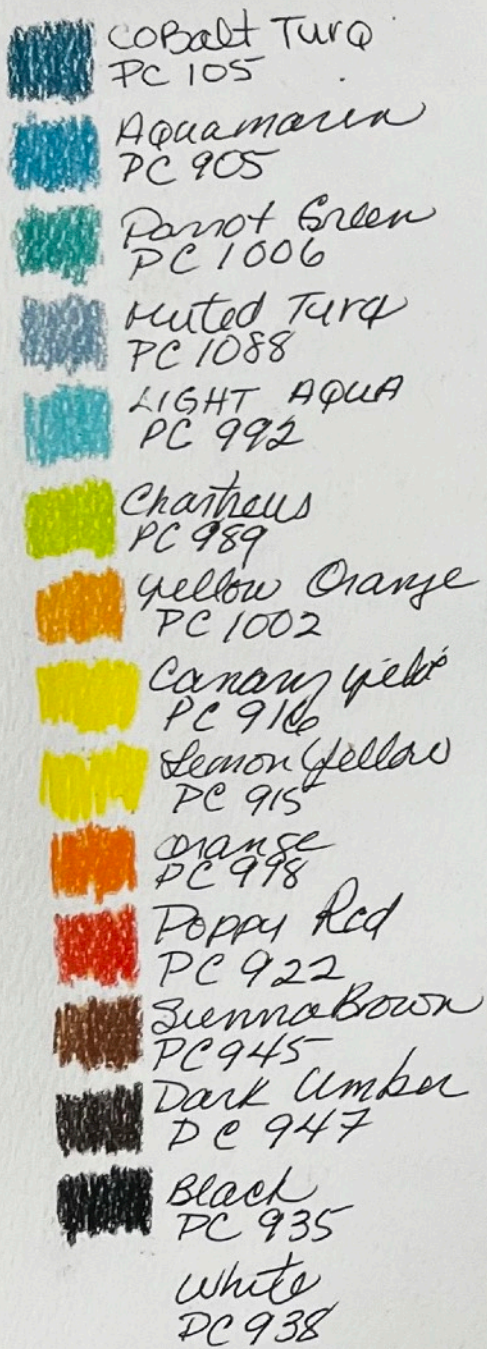 CoBalt Turq
PC 105
Aquamarin
PC 905
Parrot Green
PC 1006
Muted Turq
PC 1088
LIGHT AQUA
PC 992
Chartreus
PC 989
yellow Orange
PC 1002
Canary yello
PC 916
Lemon Yellow
PC 915
Orange
PC 998
Poppy Red
PC 922
Sienna Brown
PC 945
Dark Umber
PC 947
Black
PC 935
White
PC 938